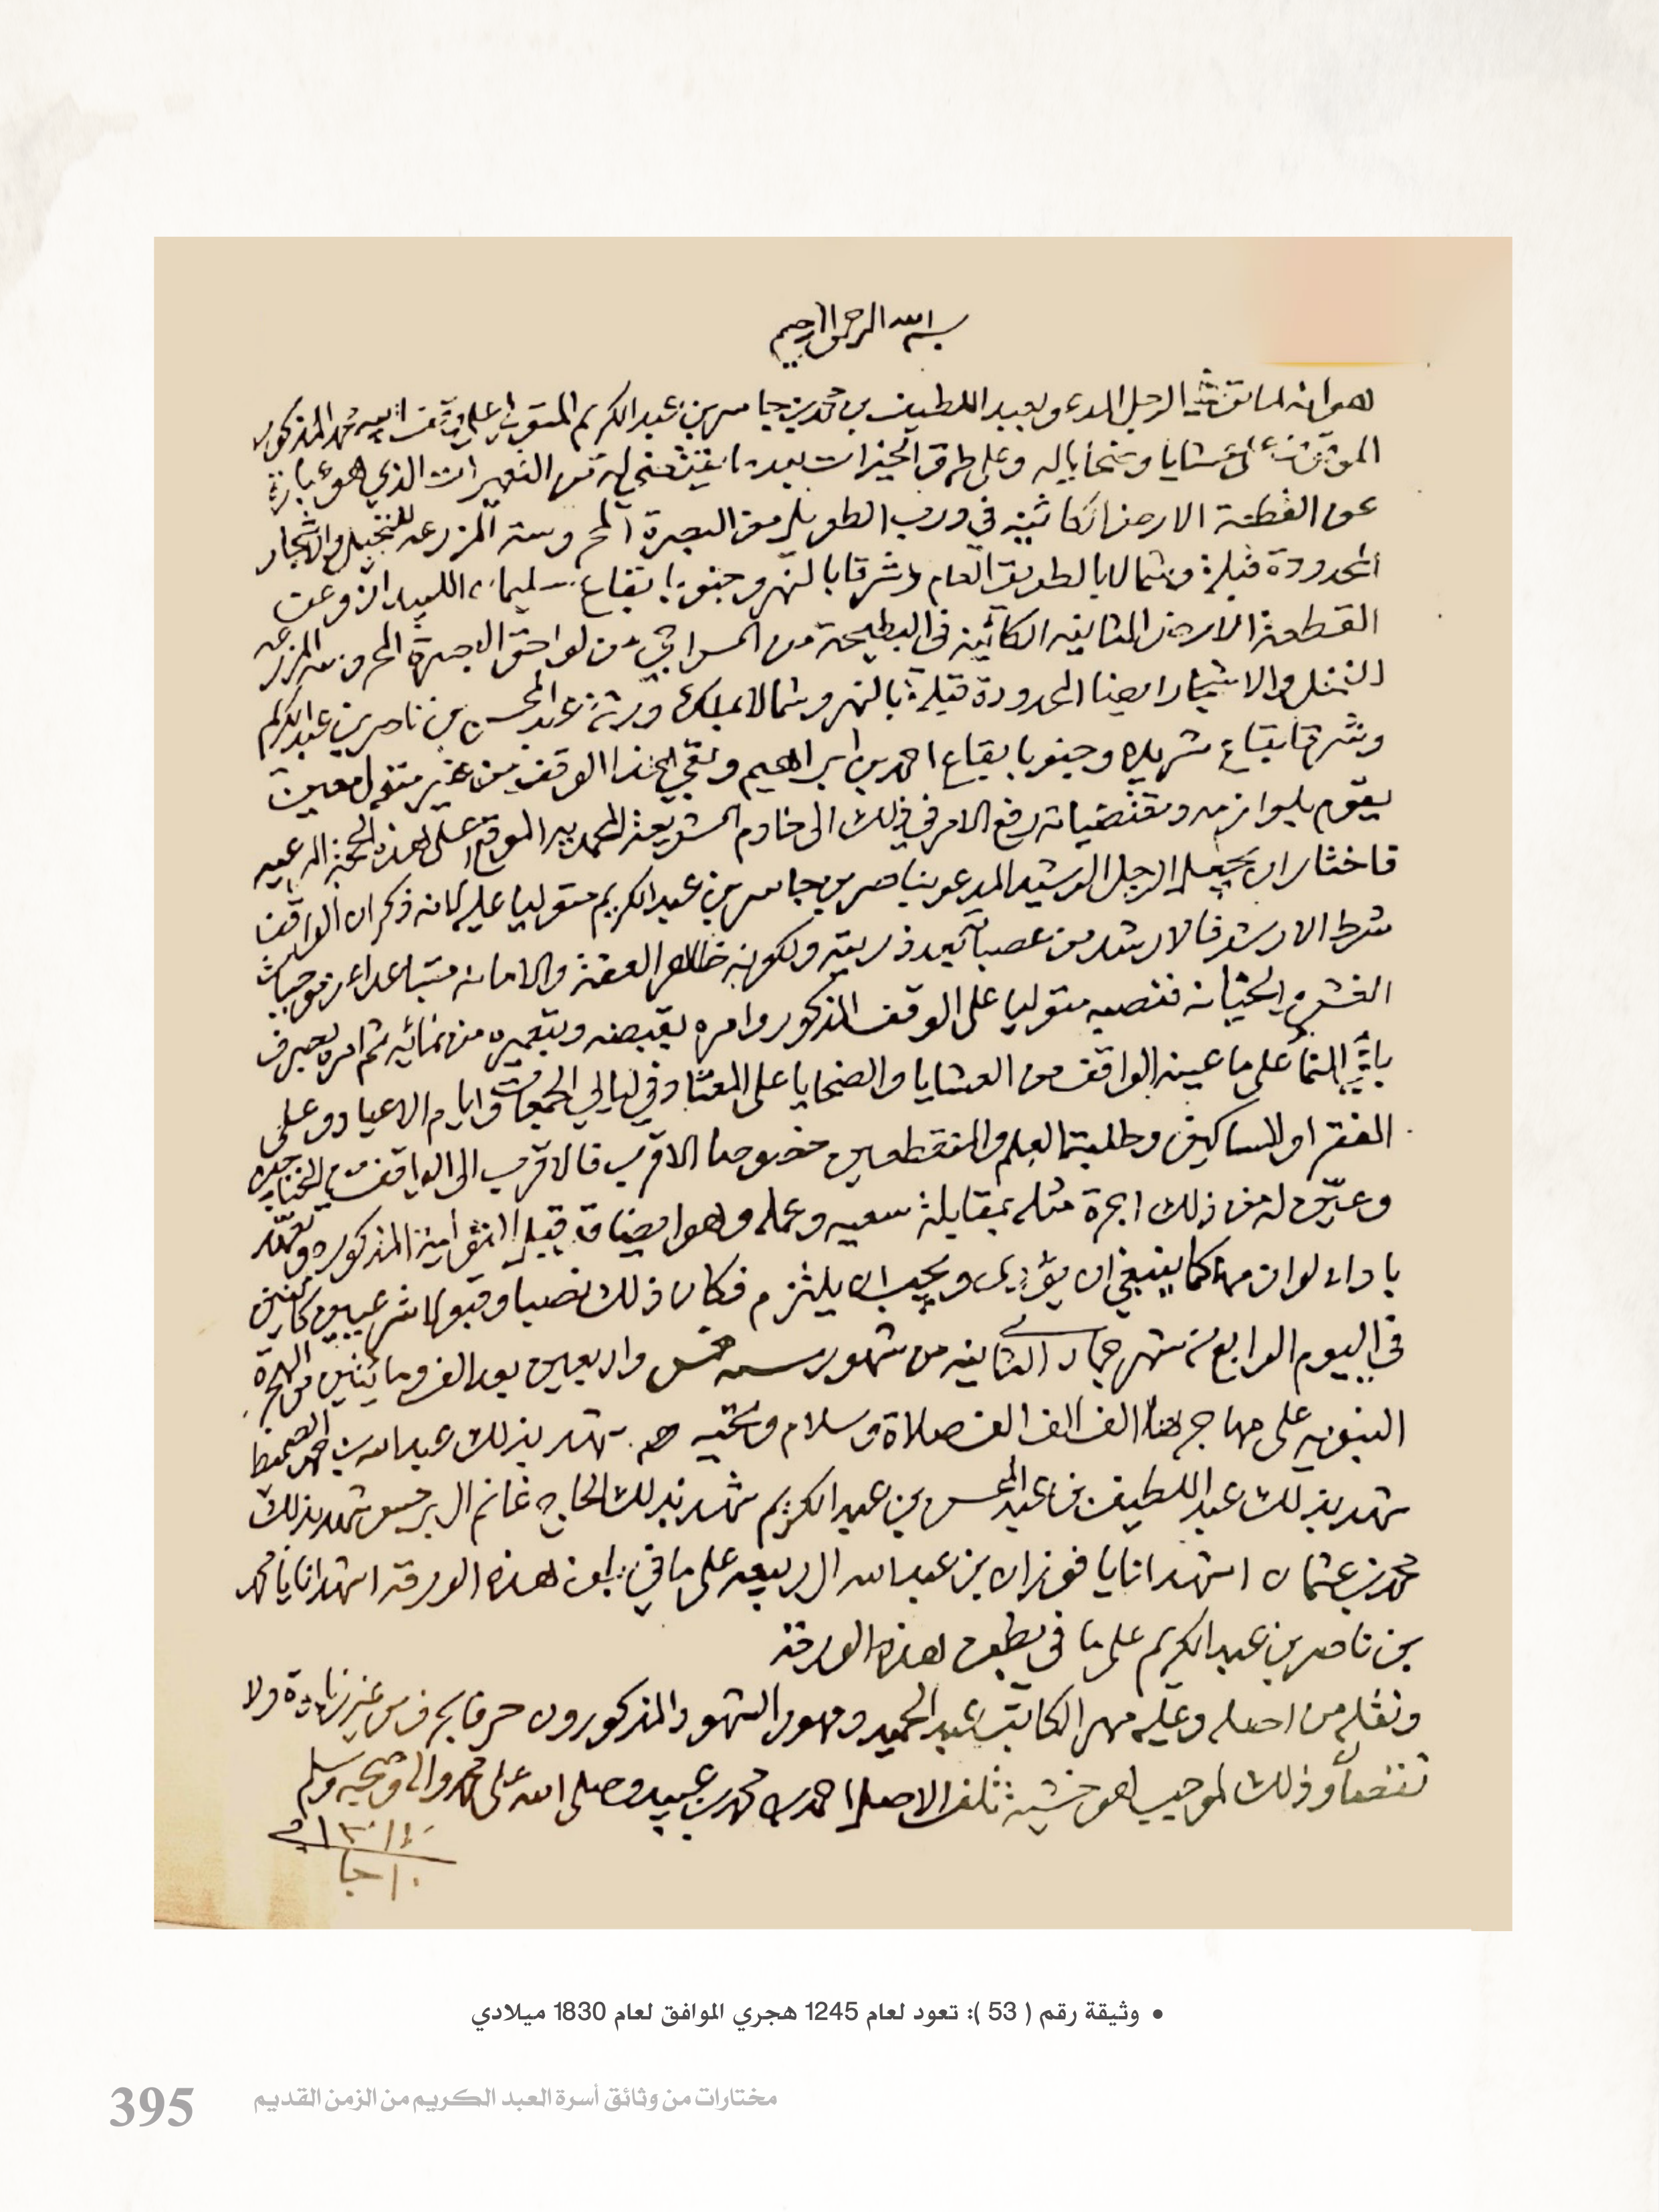 بسم الله الرحمن الرحيم
هو انه لما توفى الرجل المدعو بعبد اللطيف بن محمد بن جاسر بن عبد الكريم المتولي على وقف ابيه محمد المذكور
الموقف على عشايا وضحايا له وعلى طرق الخيرات بعد ما يقتضي له من التعميرات الذي هو عبارة
عن القطعة الارض الكائنة في درب الطويل من البصرة المحروسة المزرعه للنخيل والاشجار
المحدودة قبلة وشمالا بالطريق العام وشرقا بالنهر وجنوبا بقاع سليمان وعن
القطعة الارض الثانيه الكائنه في البطيحة من السراجي من لواحق البصرة المحروسه المزرعه
النخل والاشجار ايضا المحدودة قبلة بالنهر وشمالا بملك ورثة عبد المحسن بن ناصر بن عبد الكريم
وشرقا بقاع شريده وجنوبا بقاع احمد بن ابراهيم وبقي هذا الوقف من غير متولي معين
يقوم بلوازمه ومقتضياته رفع الامر في ذلك الى خادم الشريعة المحمديه الموقع على هذه الحجة الشرعيه
فاختار ان يجعل الرجل الرشيد المدعو بناصر بن جاسر بن عبد الكريم متوليا عليه لانه ذكر ان الواقف
شرط الارشد فالارشد من عصباته ذريته ولكونه ظاهر العفة والامانه متباعدا عن موجبات
الغش والخيانه فنصبه متوليا على الوقف المذكور وامره بقبضه وبتعميره من نمائه ثم امره بصرف
باقي النما على ما عينه الواقف من العشايا والضحايا على المعتاد في ليالي الجمعات وايام الاعياد وعلى
الفقرا والمساكين وطلبة العلم والمنقطعين خصوصا الاقرب فالاقرب الى الواقف من المحتاجين
وعين له من ذلك اجرة مثله بمقابلة سعيه وعمله وهو ايضا قد قبل التولية المذكوره وتعهد
باداء لوازمها كما ينبغي ان يؤدى ويجب ان يلتزم فكان ذلك نصبا وقبولا شرعيين كائنين
في اليوم الرابع من شهر جماد الثانيه من شهور سنه خمس واربعين بعد الف ومائتين من الهجرة
النبويه على مهاجرها الف الف صلاة وسلام وتحيه شهد بذلك عبد الله بن احمد
شهد بذلك عبد اللطيف بن عبد المحسن بن عبد الكريم شهد بذلك الحاج غانم ال برجس شهد بذلك
محمد بن عثمان اشهد انا يا فوزان بن عبد الله ال ربيعه على ما في بطن هذه الورقه اشهد انا يا محمد
بن ناصر بن عبد الكريم على ما في بطن هذه الورقة
ونقله من اصله وعليه مهر الكاتب عبد الحميد ومهور الشهود المذكورون حرفا بحرف من غير زيادة ولا
نقصا وذلك لموجب هو خشية تلف الاصل احمد بن محمد بن عبيد وصلى الله على محمد واله وصحبه وسلم
• وثيقة رقم ( 53 ): تعود لعام 1245 هجري الموافق لعام 1830 ميلادي
مختارات من وثائق أسرة العبد الكريم من الزمن القديم
395